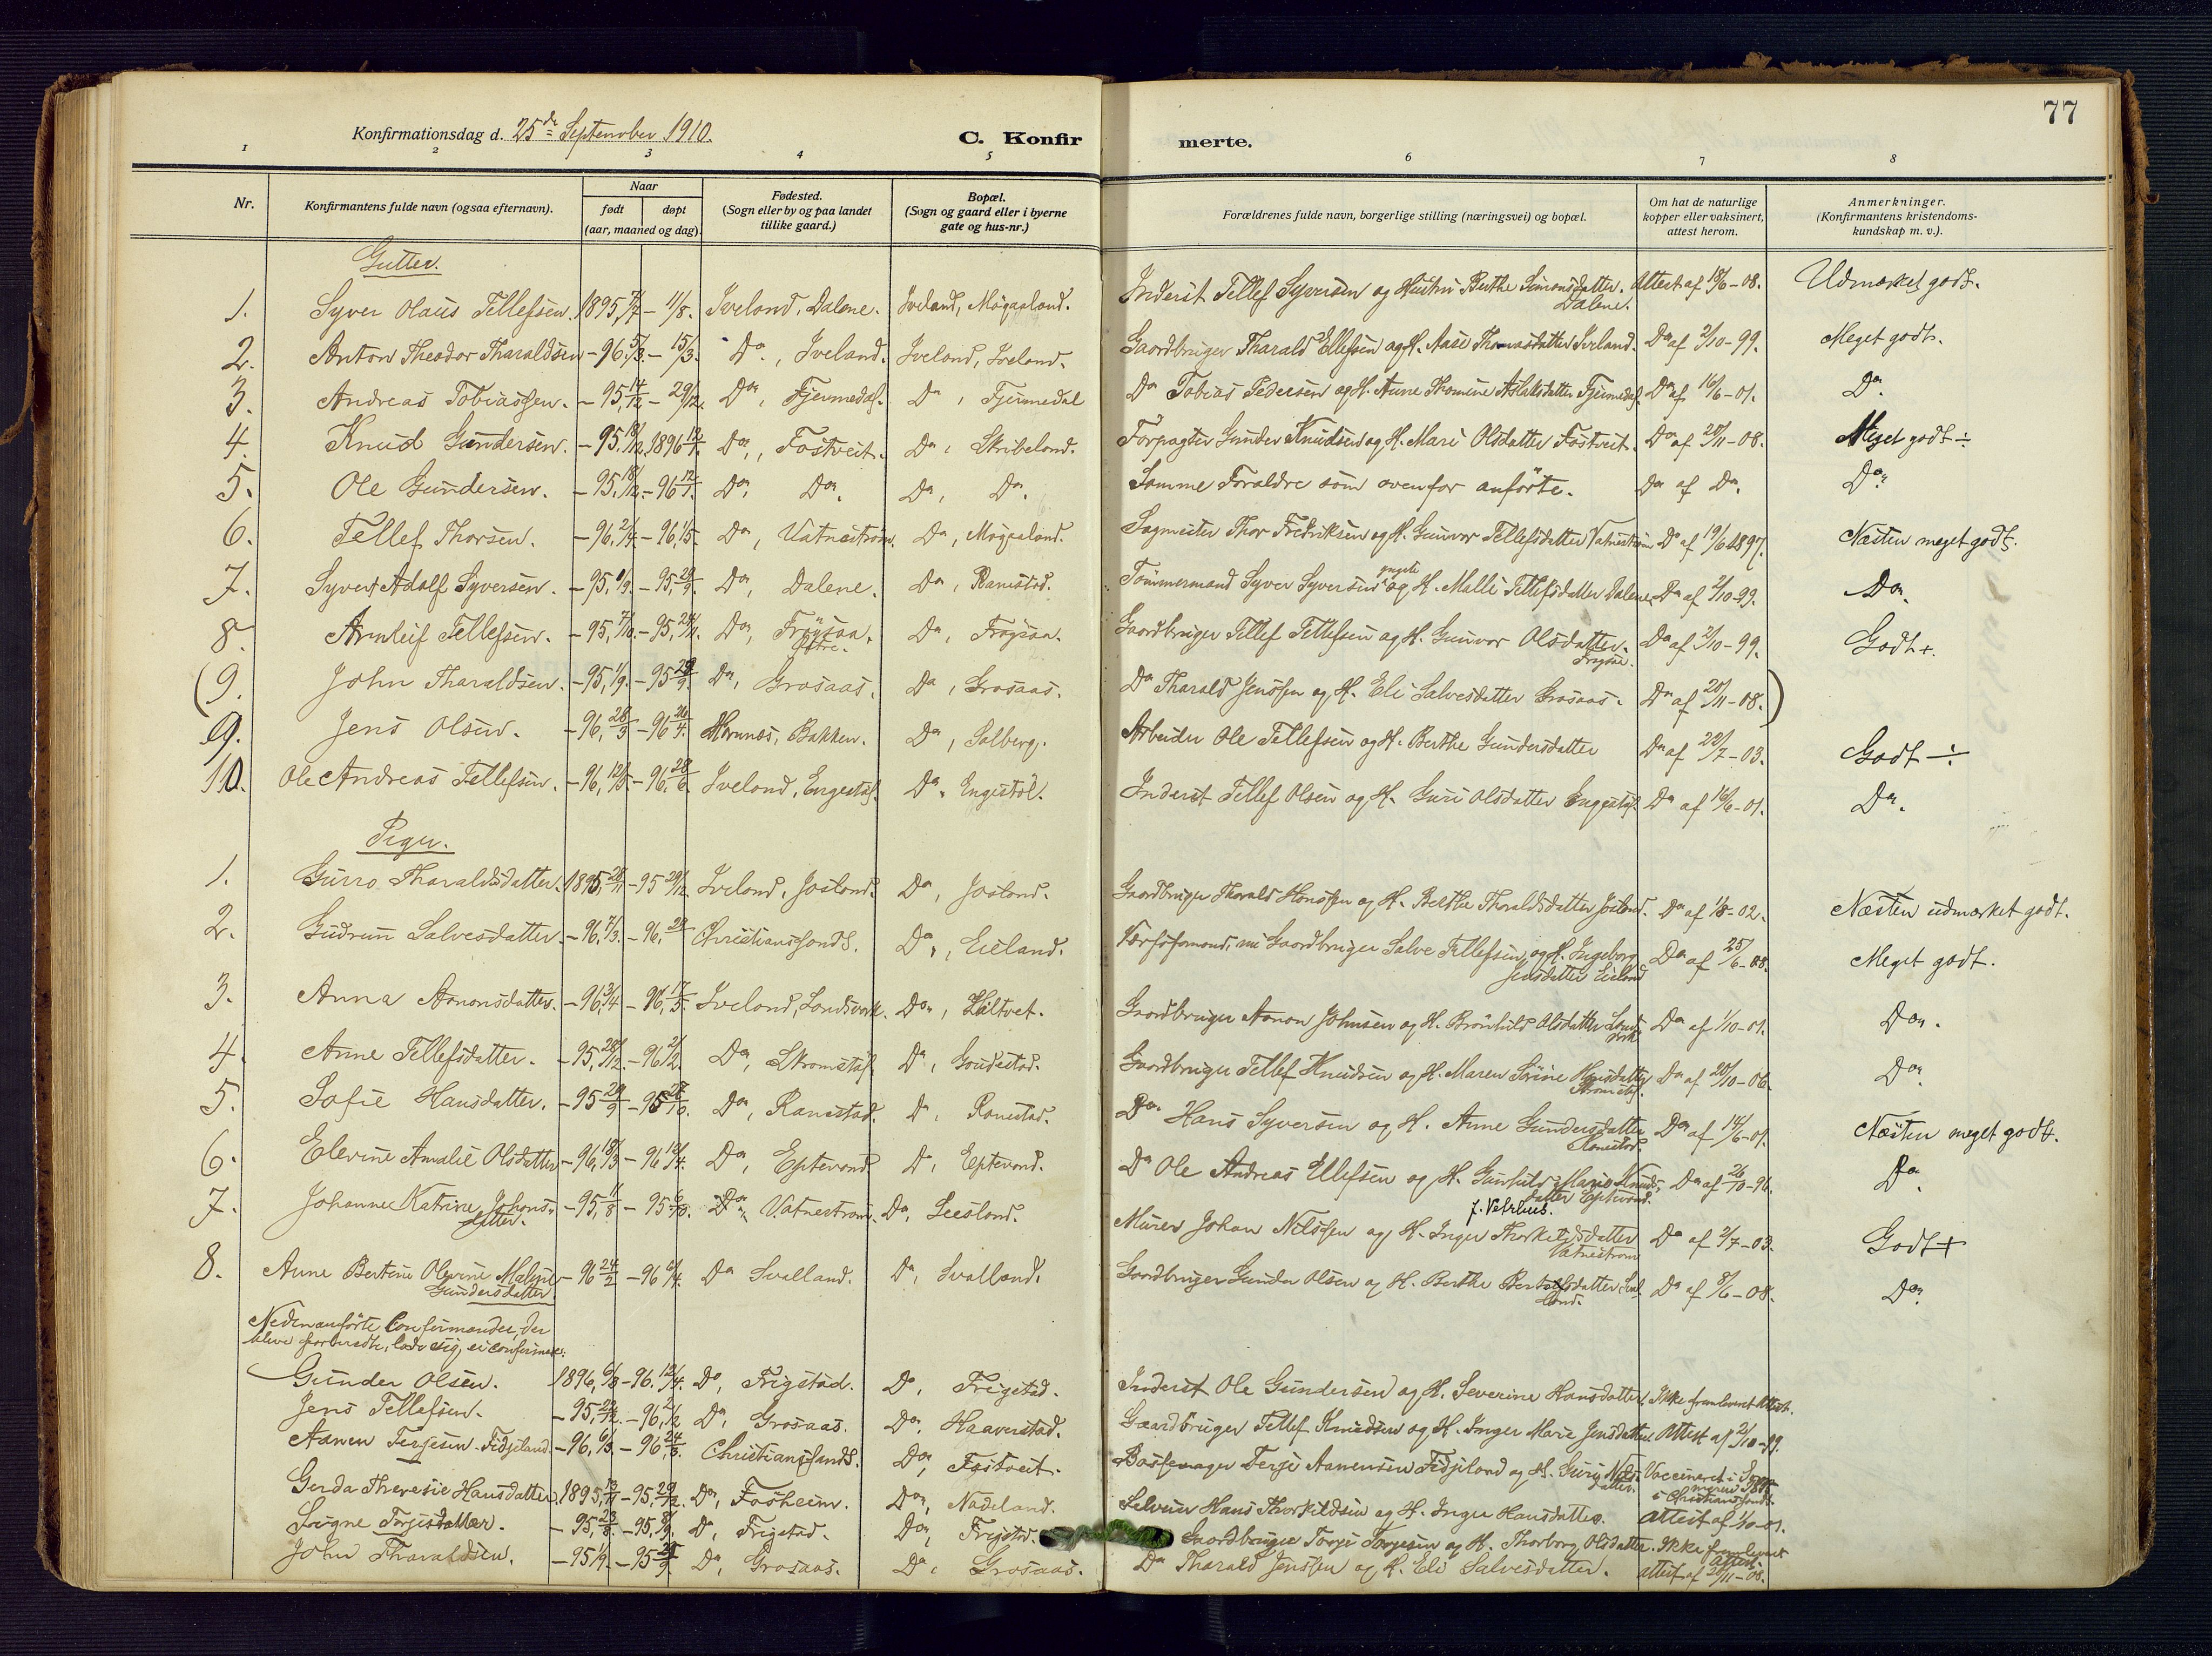 77
Konfirmationsdag d. 25de September 1910.
C. Konfir merte.
1 2 3 4 5 6 7 8
Nr.
Konfirmantens fulde navn (ogsaa efternavn).
Naar
født døpt
(aar, maaned og dag).
Fødested.
(Sogn eller by og paa landet
tillike gaard.)
Bopæl.
(Sogn og gaard eller i byerne
gate og hus-nr.)
Forældrenes fulde navn, borgerlige stilling (næringsvei) og bopæl.
Om hat de naturlige
kopper eller vaksinert,
attest herom.
Anmerkninger.
(Konfirmantens kristendoms-
kundskap m. v.).
Gutter.
1. Syver Olaus Tellefsen. 1895, 7/7 - 11/8. Iveland, Dalene. Iveland, Mogaaland. Inderst Tellef Syversen og Hustru Berthe Simonsdatter. Dalene. Attest af 18/6-08. Udmærket godt.
2. Anton Theodor Tharaldsen -96. 5/3. - 15/3. Do, Iveland. Iveland, Iveland. Gaardbruger Tharald Ellefsen og H. Aase Thomasdatter Iveland. Do af 2/10-99. Meget godt.
3. Andreas Tobiassen. -95, 14/12 - 29/12. Do, Fjermedal. Do, Fjermedal Do Tobias Pedersen og H. Anne Thomine Aslaksdatter Fjermedal. Do af 16/6-01. Do
4. Knud Gundersen. -95. 18/12. 1896 12/1. Do, Fostveit. Do, Skribeland. Forpagter Gunder Knudsen og H. Mari Olsdatter Fostveit. Do af 20/11-08. Meget godt ÷
5. Ole Gundersen. -95. 18/12. -96 12/1. Do, Do. Do, Do. Samme Foraldre som ovenfor anførte. Do af Do. Do
6. Tellef Thorsen. -96. 2/4. -96. 1/5. Do, Vatnestrøm. Do, Mogaaland. Sagmester Thor Fredriksen og H. Gunvor Tellefsdatter Vatnestrøm Do af 19/6 1897. Næsten meget godt.
7. Syvert Adolf Syversen. -95, 1/9. -95, 29/9. Do, Dalene. Do, Ramestad. Tømmermand Syver Syversen yngste og H. Malli Tellefsdatter Dalene. Do af 2/10-99. Do.
8 Arnleif Tellefsen. -95, 7/10. -95, 24/11. Do, Frøysaa. Do, Frøysaa. Gaardbruger Tellef Tellefsen og H. Gunvor Olsdatter. Frøysaa. Do af 2/10-99. Godt +.
(9. John Tharaldsen. -95, 1/9. -95 29/9. Do, Grosaas. Do, Grosaas. Do Tharald Jenssen og H. Eli Salvesdatter Grosaas. Do af 20/11-08.)
9. Jens Olsen. -96, 28/3 -96 26/4. Hornnes, Bakken. Do, Solberg. Arbeider Ole Tellefsen og H. Berthe Gundersdatter Do af 22/7-03. Godt ÷
10. Ole Andreas Tellefsen. -96, 12/5 -96. 28/6. Iveland, Engestøl. Do. Engestøl. Inderst Tellef Olsen og H. Guri Olsdatter Engestøl. Do af 16/6-01. Do.
Piger.
1. Gurro Tharaldsdatter. 1895, 28/11 -95 29/12. Iveland, Josland. Do, Josland. Gaardbruger Tharald Hanssen og H. Berthe Tharaldsdatter Josland. Do af 1/8-02. Næsten udmærket godt.
2. Gudrun Salvesdatter. -96, 7/3. -96, 29 Christianssands. Do, Eieland. nu Gaardbruger Salve Tellefsen, og H. Ingeborg Jensdatter Eieland Do af 25/6-08. Meget godt.
3. Anna Aanonsdatter. -96, 3/4 -96, 17/5. Iveland, Landsverk. Do, Hiltvet. Gaardbruger Aanon Johnsen og H. Brønhild Olsdatter Do af 1/10-01. Do.
4. Anne Tellefsdatter. -95, 28/12. -96 2/2. Do, Strømstøl Do, Goudestad. Gaardbruger Tellef Knudsen og H. Maren Sørine Hansdatter Do af 20/10-06. Do
5. Sofie Hansdatter. -95 20/9 -95 27/10. Do, Ranestad. Do, Ranestad. Do Hans Syversen og H. Anne Gundersdatter Ranestad. Do af 14/6-01. Næsten meget godt.
6. Elevine Amalie Olsdatter -96, 18/3 -96 12/4. Do, Eptevand Do, Eptevand. Do Ole Andreas Ellefsen og H. Gunhild Marie Knudsdatter Eptevand. Do af 26/10-96. Do
7. Johanne Katrine Johansdatter. -95, 11/8 -95 6/10. Do, Vatnestrøm. Do, Leesland. f. Vetrhus. Murer Johan Nilssen og H. Inger Thorkildsdatter Vatnestrøm Do af 2/7-03. Godt +
8. Anne Bertine Olevine Maline Gundersdatter -96 24/2 -96 6/4. Do Svalland. Do, Svalland. Gaardbruger Gunder Olsen og H. Berthe Do af 8/6-08. Do
Nedenanførte Confirmander, der
bleve forberedte, lode sig ei confirmere:
Gunder Olsen. 1896, 6/3 -96. 12/4. Do, Frigstad. Do, Frigstad. Inderst Ole Gundersen og H. Severine Hansdatter. Ikke fremleveret Attest.
Jens Tellefsen. -95, 29/12. -96, 2/2 Do, Grosaas. Do. Haaverstad. Gaardbruger Tellef Knudsen og H. Inger Marie Jensdatter. Attest af 2/10-99.
Aanen Terjesen Fidjeland. -96, 6/3. -96, 24/5. Christianssands. Do, Fostveit. Terje Aanensen Fidjeland og H. Guri Nilsdatter. Vaccineret i Christianssand.
Gerda Theresie Hansdatter. 1895, 13/11 -95, 29/12. Do, Fosheim. Do, Nadeland. Selveier Hans Thorkildsen og H. Inger Hansdatter. Attest af 1/10-01.
Signe Torjesdatter. -95, 23/8. -95, 8/9. Do, Frigstad. Do, Frigstad. Gaardbruger Torje Torjesen og H. Thorborg Olsdatter. Ikke fremleveret Attest.
John Tharaldsen. -95 1/9. -95 29/9. Do, Grosaas. Do, Grosaas. Do Tharald Jenssen og H. Eli Salvesdatter. attest af 20/11-08.